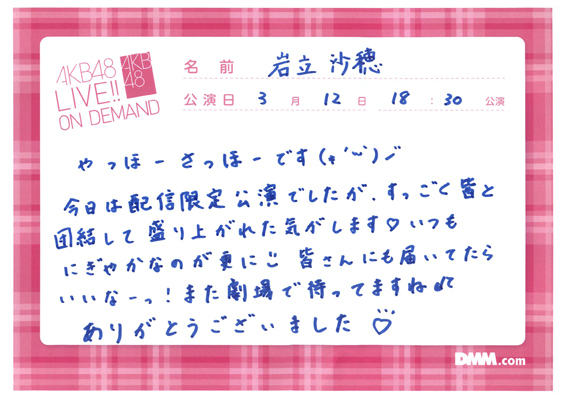 AKB48
LIVE!!
ON DEMAND
AKB
48
名前 岩立沙穂
公演日 3月12日 18:30公演
やっほーさっほーです(๑'ᵕ')ノ
今日は配信限定公演でしたが、すっごく皆と
団結して盛り上がれた気がします♡いつも
にぎやかなのが更に 皆さんにも届いてたら
いいなーっ!また劇場で待ってますね♫
ありがとうございました♡
DMM.com